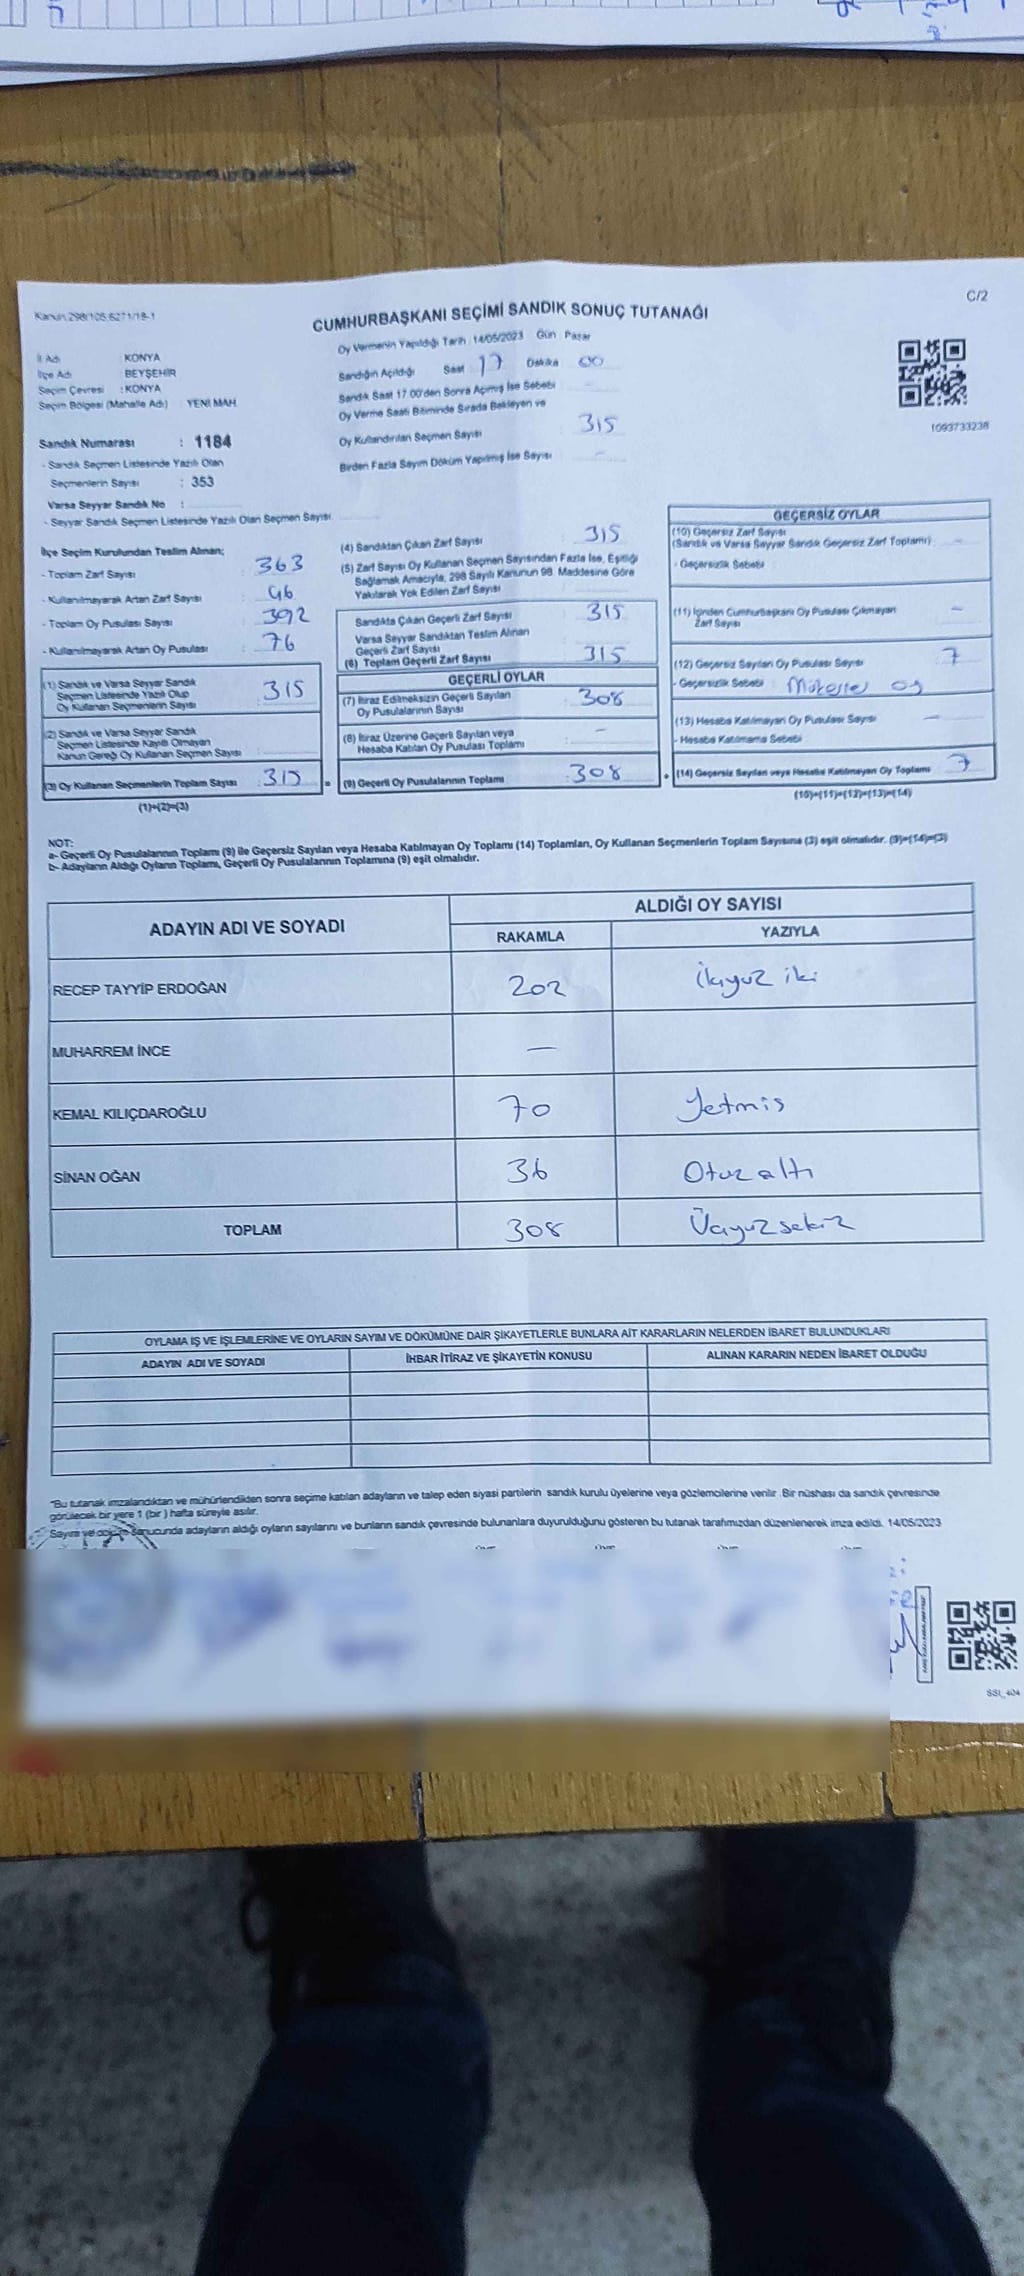 Kanun:298/105;6271/18-1
C/2
CUMHURBAŞKANI SEÇİMİ SANDIK SONUÇ TUTANAĞI
Oy Vermenin Yapıldığı Tarih : 14/05/2023 Gün : Pazar
İl Adı : KONYA
İlçe Adı : BEYŞEHİR
Seçim Çevresi : KONYA
Seçim Bölgesi (Mahalle Adı) : YENİ MAH.
Sandığın Açıldığı Saat 17 Dakika 00
Sandık Saat 17.00'den Sonra Açımış İse Sebebi -
Oy Verme Saati Bitiminde Sırada Bekleyen ve
Oy Kullandırılan Seçmen Sayısı : 315
Birden Fazla Sayım Döküm Yapılmış İse Sayısı : -
1093733238
Sandık Numarası : 1184
- Sandık Seçmen Listesinde Yazılı Olan
Seçmenlerin Sayısı : 353
Varsa Seyyar Sandık No :
- Seyyar Sandık Seçmen Listesinde Yazılı Olan Seçmen Sayısı
İlçe Seçim Kurulundan Teslim Alınan;
- Toplam Zarf Sayısı : 363
- Kullanılmayarak Artan Zarf Sayısı : 46
- Toplam Oy Pusulası Sayısı : 392
- Kullanılmayarak Artan Oy Pusulası : 76
(1) Sandık ve Varsa Seyyar Sandık
Seçmen Listesinde Yazılı Olup
Oy Kullanan Seçmenlerin Sayısı : 315
(2) Sandık ve Varsa Seyyar Sandık
Seçmen Listesinde Kayıtlı Olmayan
Kanun Gereği Oy Kullanan Seçmen Sayısı :
(3) Oy Kullanan Seçmenlerin Toplam Sayısı : 315 =
(1)+(2)=(3)
(4) Sandıktan Çıkan Zarf Sayısı : 315
(5) Zarf Sayısı Oy Kullanan Seçmen Sayısından Fazla İse, Eşitliği
Sağlamak Amacıyla, 298 Sayılı Kanunun 98. Maddesine Göre
Yakılarak Yok Edilen Zarf Sayısı
Sandıkta Çıkan Geçerli Zarf Sayısı : 315
Varsa Seyyar Sandıktan Teslim Alınan
Geçerli Zarf Sayısı
(6) Toplam Geçerli Zarf Sayısı : 315
GEÇERLİ OYLAR
(7) İtiraz Edilmeksizin Geçerli Sayılan
Oy Pusulalarının Sayısı : 308
(8) İtiraz Üzerine Geçerli Sayılan veya
Hesaba Katılan Oy Pusulası Toplamı : -
(9) Geçerli Oy Pusulalarının Toplamı : 308 +
GEÇERSİZ OYLAR
(10) Geçersiz Zarf Sayısı
(Sandık ve Varsa Seyyar Sandık Geçersiz Zarf Toplamı) : -
- Geçersizlik Sebebi :
(11) İçinden Cumhurbaşkanı Oy Pusulası Çıkmayan
Zarf Sayısı -
(12) Geçersiz Sayılan Oy Pusulası Sayısı 7
- Geçersizlik Sebebi : Mükerrer oy
(13) Hesaba Katılmayan Oy Pusulası Sayısı : -
- Hesaba Katılmama Sebebi
(14) Geçersiz Sayılan veya Hesaba Katılmayan Oy Toplamı : 7
(10)+(11)+(12)+(13)=(14)
NOT:
a- Geçerli Oy Pusulalarının Toplamı (9) ile Geçersiz Sayılan veya Hesaba Katılmayan Oy Toplamı (14) Toplamları, Oy Kullanan Seçmenlerin Toplam Sayısına (3) eşit olmalıdır. (9)+(14)=(3)
b- Adayların Aldığı Oyların Toplamı, Geçerli Oy Pusulalarının Toplamına (9) eşit olmalıdır.
ADAYIN ADI VE SOYADI
ALDIĞI OY SAYISI
RAKAMLA YAZIYLA
RECEP TAYYİP ERDOĞAN 202 ikiyüz iki
MUHARREM İNCE —
KEMAL KILIÇDAROĞLU 70 Yetmiş
SİNAN OĞAN 36 Otuz altı
TOPLAM 308 Üçyüz sekiz
OYLAMA İŞ VE İŞLEMLERİNE VE OYLARIN SAYIM VE DÖKÜMÜNE DAİR ŞİKAYETLERLE BUNLARA AİT KARARLARIN NELERDEN İBARET BULUNDUKLARI
ADAYIN ADI VE SOYADI İHBAR İTİRAZ VE ŞİKAYETİN KONUSU ALINAN KARARIN NEDEN İBARET OLDUĞU
*Bu tutanak imzalandıktan ve mühürlendikten sonra seçime katılan adayların ve talep eden siyasi partilerin sandık kurulu üyelerine veya gözlemcilerine verilir. Bir nüshası da sandık çevresinde
görülecek bir yere 1 (bir) hafta süreyle asılır.
Sayım ve döküm sonucunda adayların aldığı oyların sayılarını ve bunların sandık çevresinde bulunanlara duyurulduğunu gösteren bu tutanak tarafımızdan düzenlenerek imza edildi. 14/05/2023
SSI_404